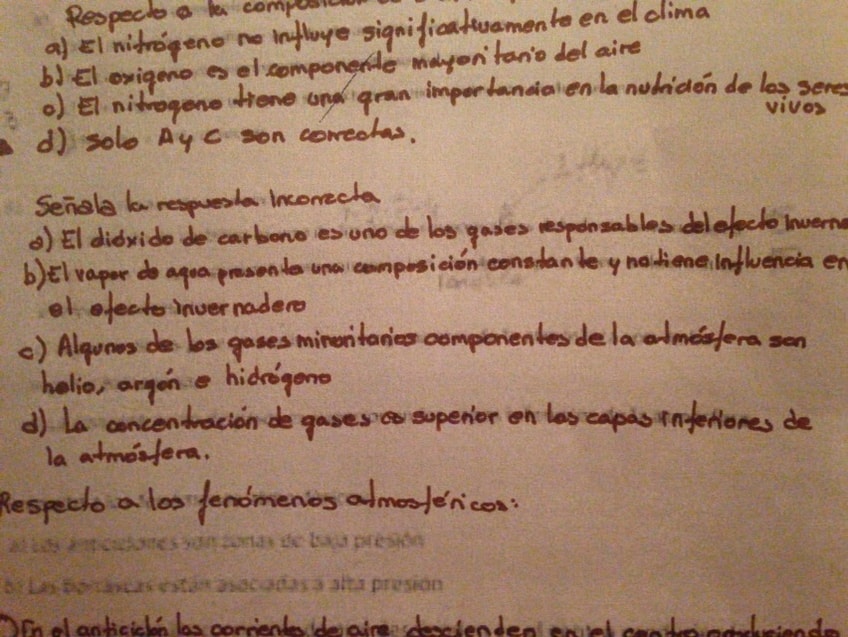 Respecto a la composición de
a) El nitrógeno no influye significativamente en el clima
b) El oxigeno es el componente mayoritario del aire
c) El nitrogeno tiene una gran importancia en la nutrición de los seres
vivos
d) solo A y C son correctas.
Señala la respuesta incorrecta
a) El dióxido de carbono es uno de los gases responsables del efecto inverne
b) El vapor de agua presenta una composición constante y no tiene influencia en
el efecto invernadero
c) Algunos de los gases minoritarios componentes de la atmósfera son
helio, argón e hidrógeno
d) La concentración de gases es superior en las capas inferiores de
la atmósfera.
Respecto a los fenómenos atmosféricos:
a) Los anticiclones son zonas de baja presión
b) Las borrascas están asociadas a alta presión
c) En el anticiclón las corrientes de aire descienden en el centro produciendo